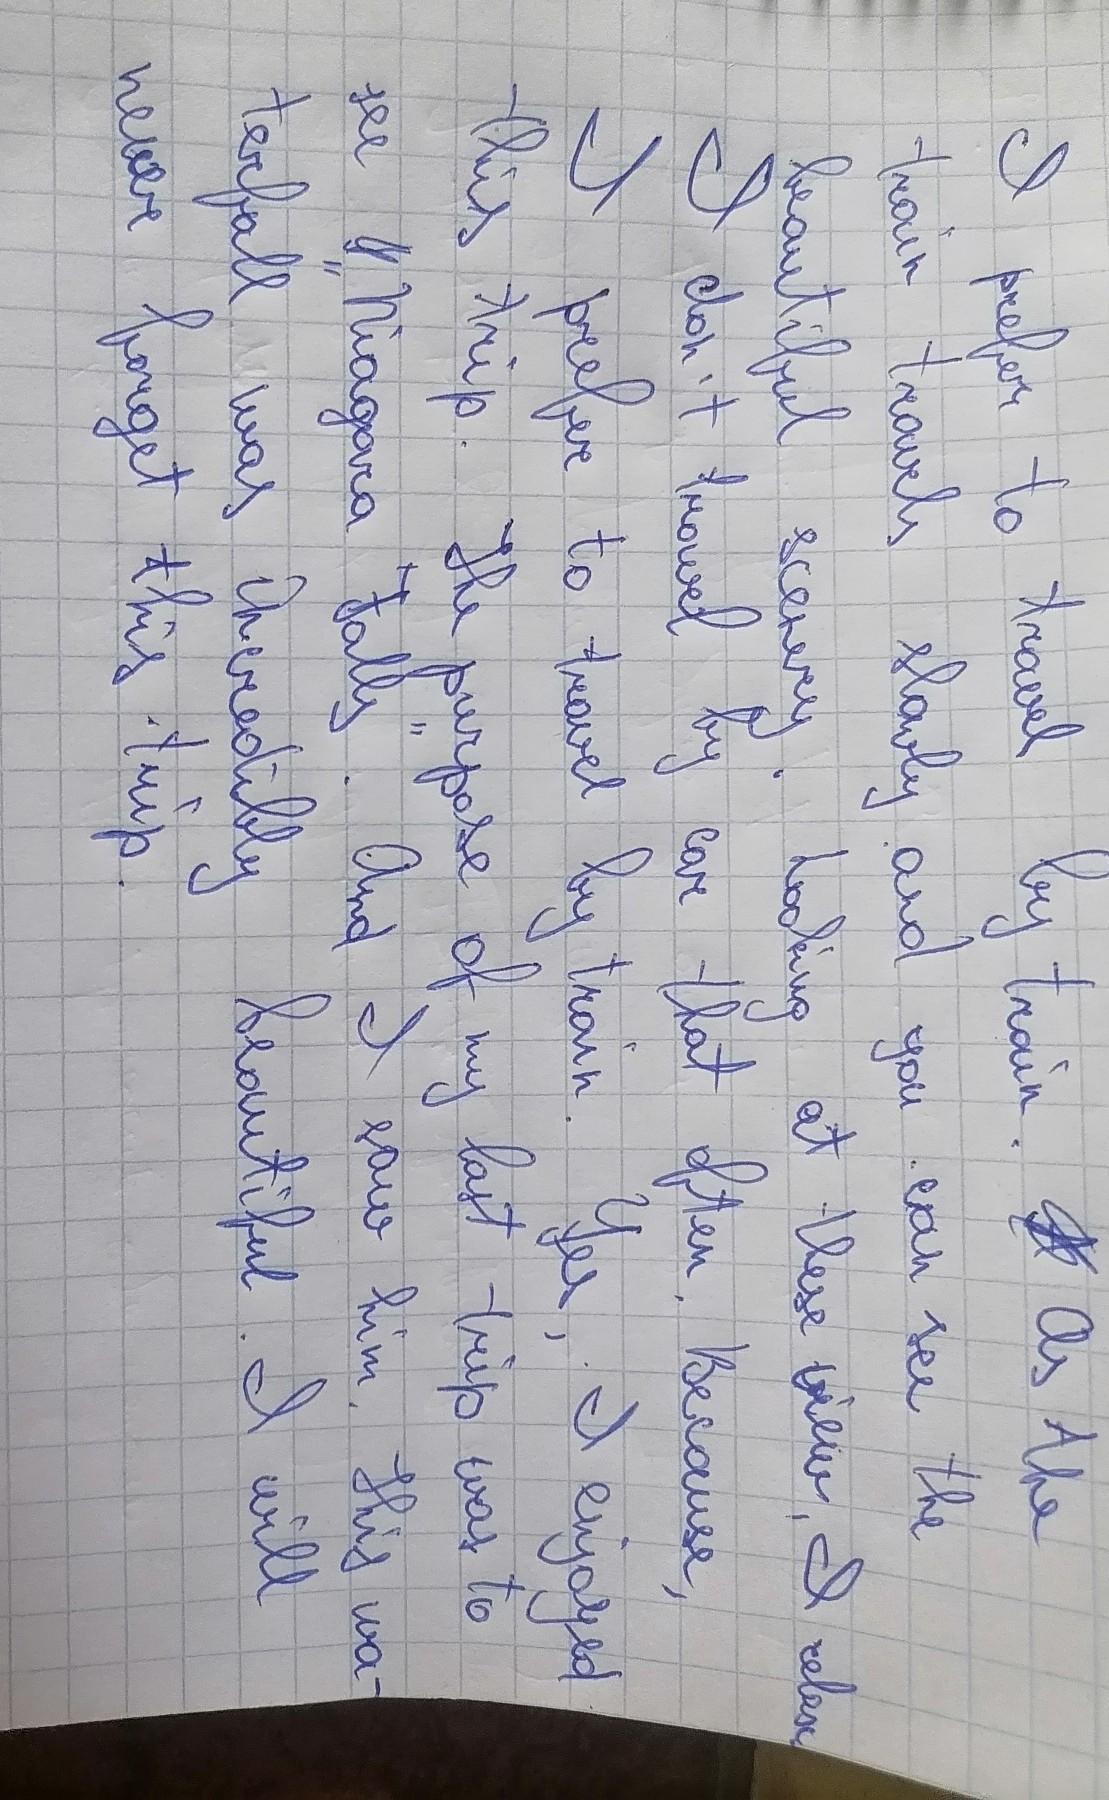 I prefer to travel by train. As the
train travels slowly and you can see the
beautiful scenery. Looking at these view, I relax
I don't travel by car that often, Because,
I prefer to travel by train. Yes, I enjoyed
this trip. The purpose of my last trip was to
see "Niagara Falls". And I saw him. This wa-
terfall was incredibly beautiful. I will
never forget this trip.